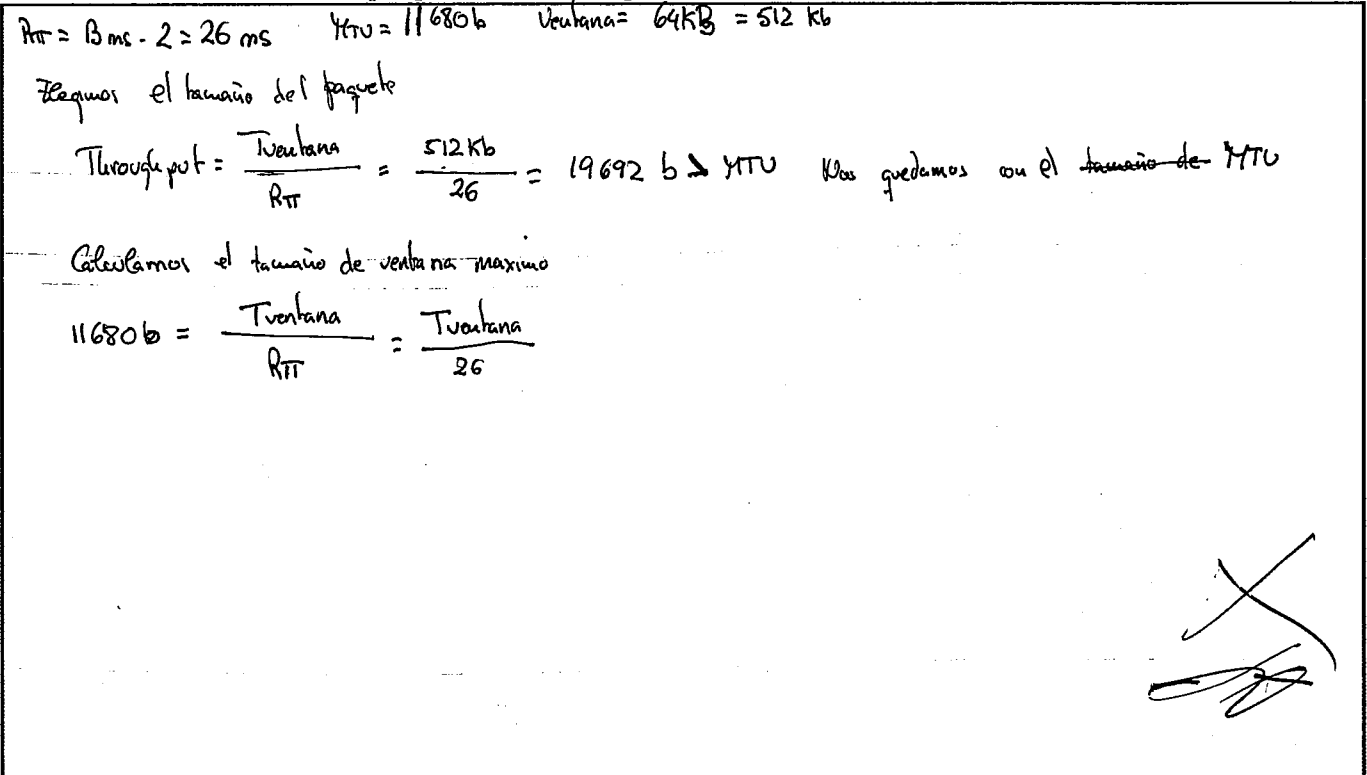 RTT = 13 ms · 2 = 26 ms MTU = 11680 b Ventana = 64KB = 512 Kb
Elegimos el tamaño del paquete
Throughput = Tventana / RTT = 512 Kb / 26 = 19692 b > MTU Nos quedamos con el tamaño de MTU
Calculamos el tamaño de ventana maximo
11680 b = Tventana / RTT = Tventana / 26